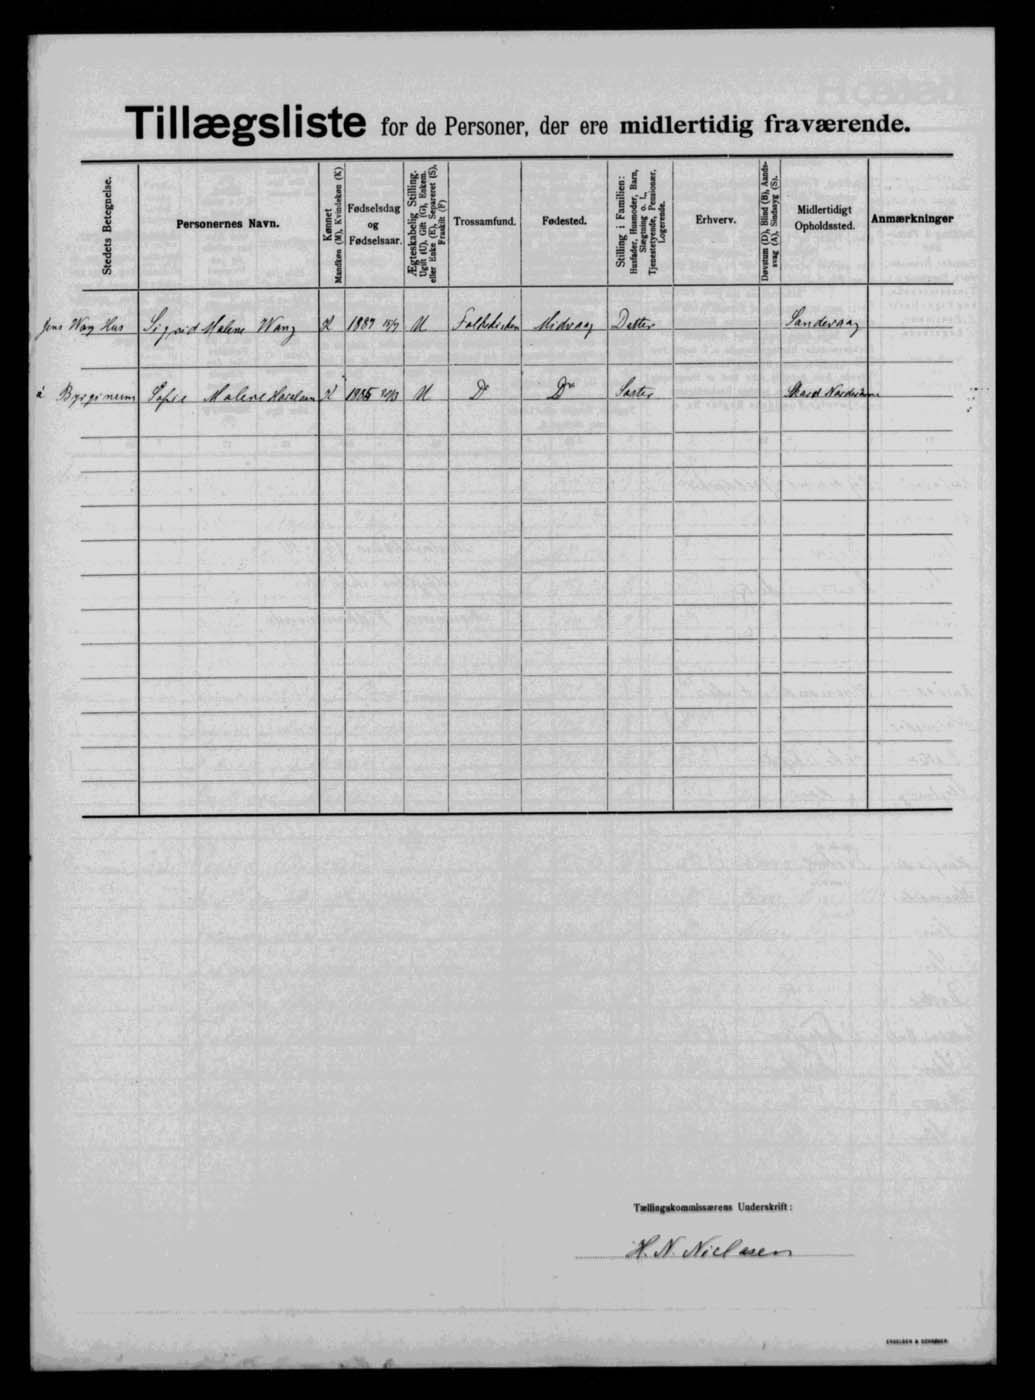 Tillægsliste for de Personer, der ere midlertidig fraværende.
Stedets Betegnelse.
Personernes Navn.
Kønnet
Mandkøn (M), Kvindekøn (K)
Fødselsdag
og
Fødselsaar.
Ægteskabelig Stilling.
Ugift (U), Gift (G), Enkem.
eller Enke (E), Separeret (S),
Fraskilt (F)
Trossamfund.
Fødested.
Stilling i Familien:
Husfader, Husmoder, Barn,
Slægtning o. l.,
Tjenestetyende, Pensionær,
Logerende.
Erhverv.
Døvstum (D), Blind (B), Aands-
svag (A), Sindssyg (S).
Midlertidigt
Opholdssted.
Anmærkninger
Jens Wang Hus Sigrid Malene Wang K 1887 U Folkekirken Midvaag Datter Sandevaag
á Byrginum Sofie Malene K 1885 U Do Do Søster Skard
Tællingskommissærens Underskrift:
H. N. Nielsen
ENGELSEN & SCHRØDER